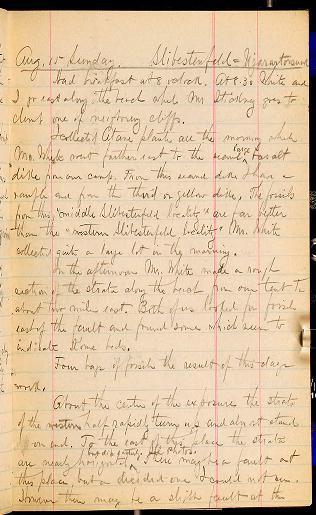 Aug. 15 Sunday. Slibestenfeld = Niarartorsuak
Had breakfast at 8 oclock. At 8.30 White and
I go east along the beach while Mr. Stecking goes to
climb one of neighboring cliffs.
I collect Atane plants all the morning while
Mr. White went farther east to the second large basalt
dike from our camp. From this second dike I have a
sample and from the third or yellow dike. The fossils
from this, "middle Slibestenfeld locality" are far better
than the "western Slibestenfeld locality" Mr. White
collected quite a large lot in the morning.
In the afternoon Mr. White made a rough
section of the strata along the beach from our tent to
about two miles east. Both of us looked for fossils
east of the fault and found some which seem to
indicate Kome beds.
Four bags of fossils the result of this days
work.
About the center of the exposure the strata
of the western half rapidly turns up and almost stand
on end. To the east of this place the strata
are nearly horizontal, There may be a fault at
this place, but a decided one I could not see.
However there may be a slight fault at the